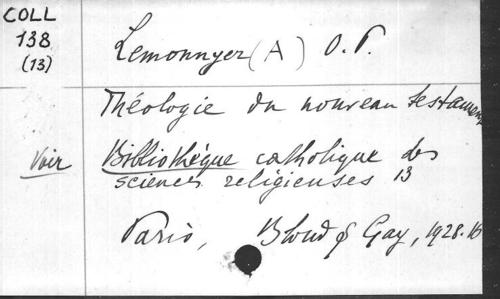 COLL
138
(13)
Lemonnyer (A) O.P.
Théologie du nouveau testament
Voir Bibliothèque catholique des
sciences religieuses 13
Paris, Bloud & Gay, 1928. 16